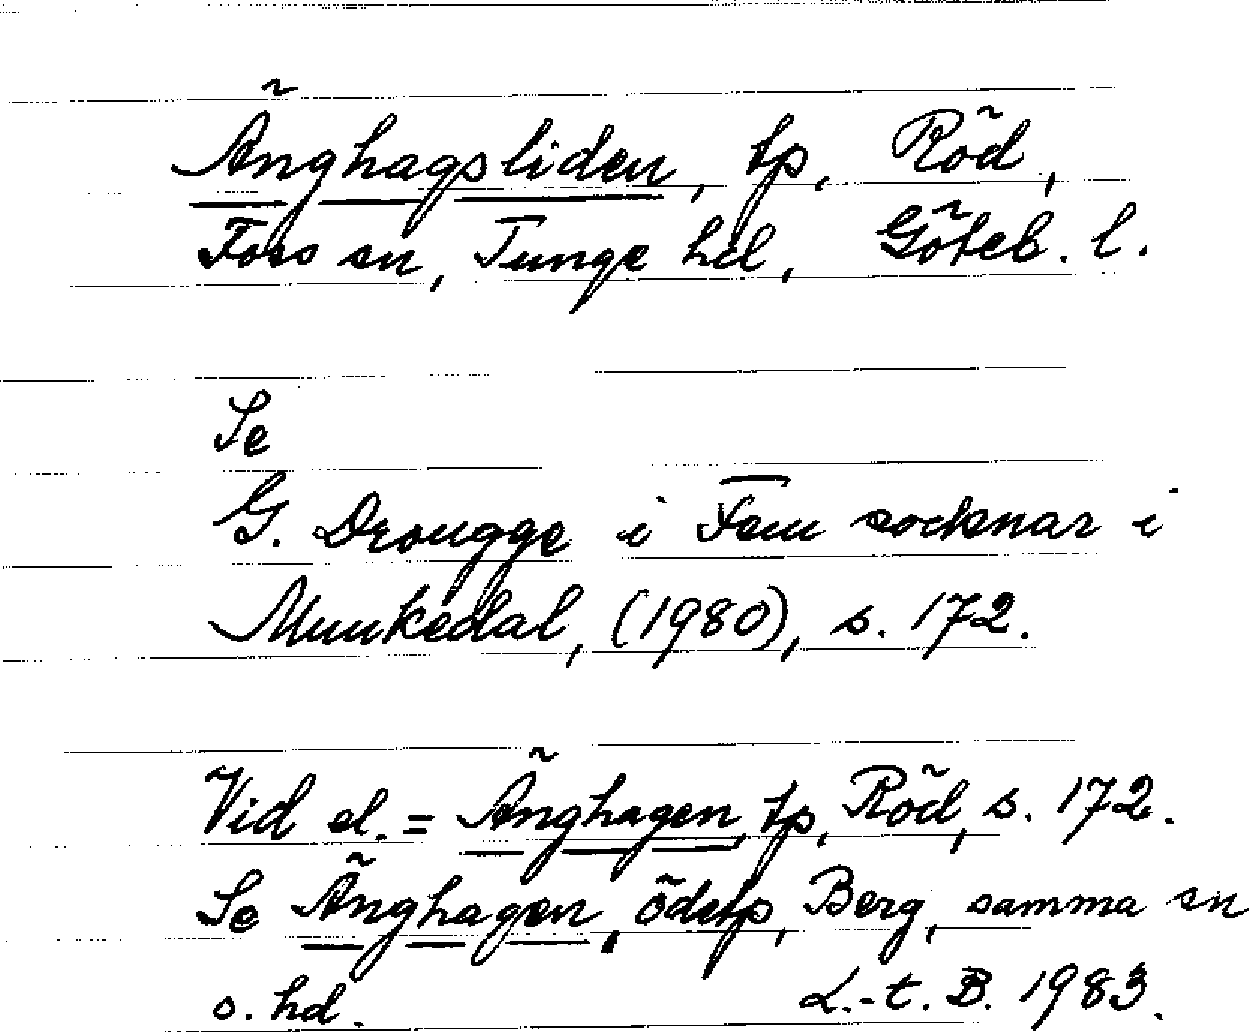 Änghagsliden, tp, Röd,
Foss sn, Tunge hd, Göteb. l.
Se
G. Drougge i Fem socknar i
Munkedal, (1980), s. 172.
Vid el. = Änghagen, tp, Röd, s. 172.
Se Änghagen, ödetp, Berg, samma sn
o. hd. L.-t. B. 1983.